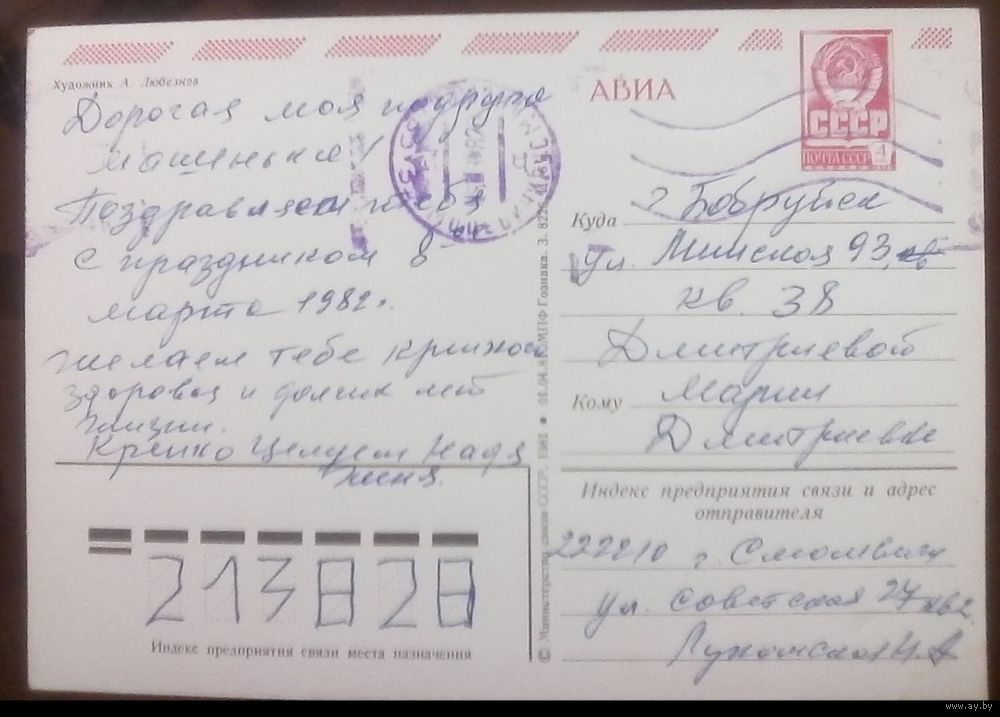 Художник А. Любезнов
Дорогая моя подруга
Машенька!
Поздравляем тебя
с праздником 8
марта 1982г.
Желаем тебе крепкого
здоровья и долгих лет
жизни.
Крепко Целуем Надя
Женя.
213828
Индекс предприятия связи места назначения
© Министерство связи СССР, 1981 • 01.04.81 МПФ Гознака. З. 8226
АВИА
СССР
4
ПОЧТА СССР
Куда г Бобруйск
ул. Минская 93
кв. 38
Дмитриевой
Кому Марии
Дмитриевне
Индекс предприятия связи и адрес
отправителя
222210 г. Смолевичи
ул. Советская 27 кв 2
Лукомская Н.А
www.ay.by